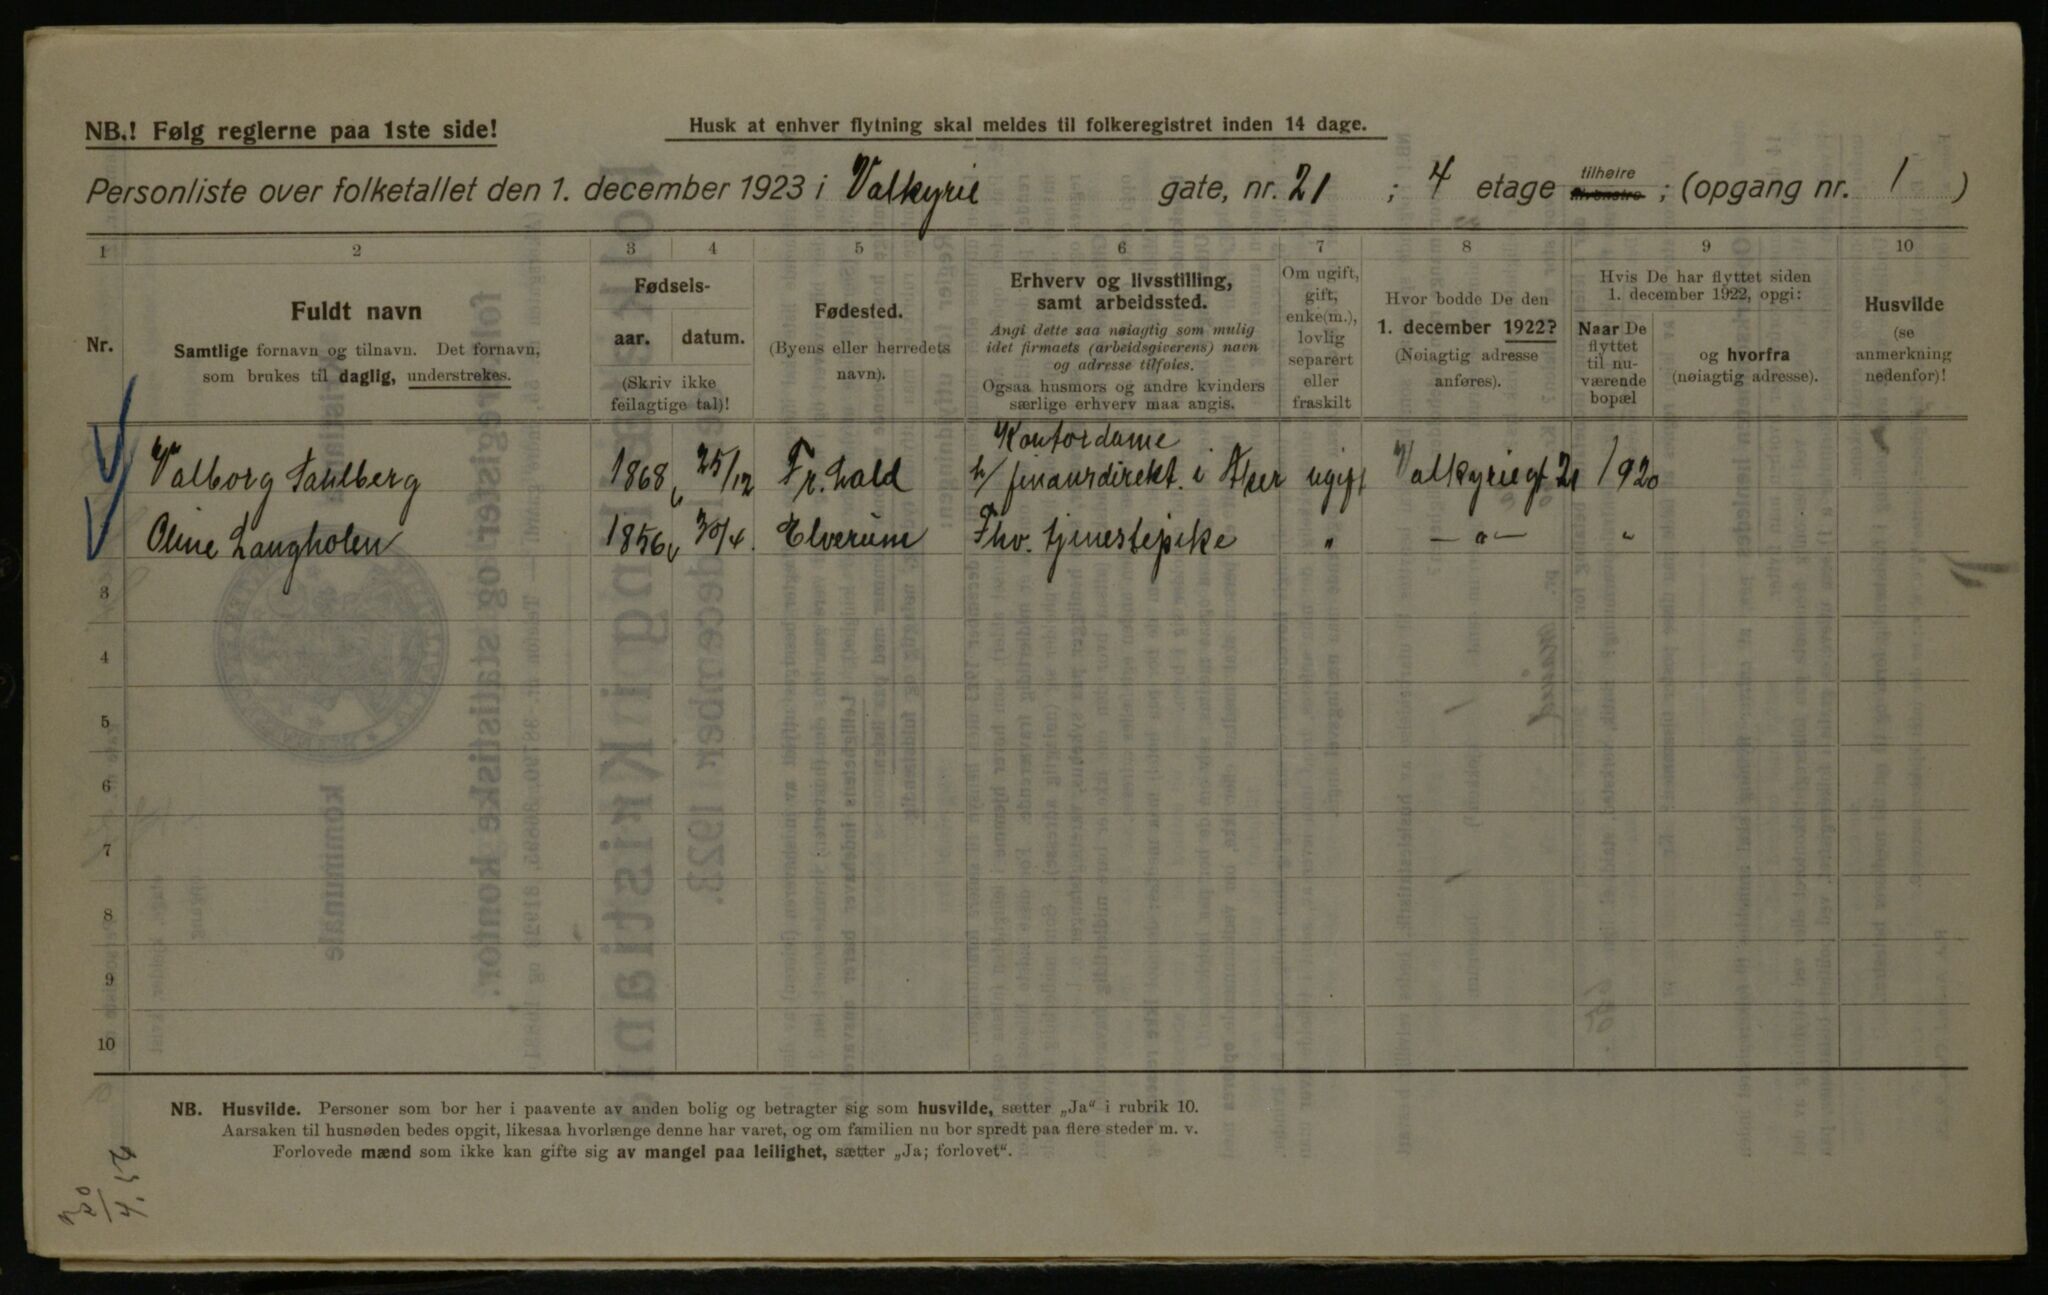 NB.! Følg reglerne paa 1ste side!
Husk at enhver flytning skal meldes til folkeregistret inden 14 dage.
Personliste over folketallet den 1. december 1923 i Valkyrie gate, nr. 21 ; 4 etage tilhøire tilvenstre ; (opgang nr. 1 )
1 2 3 4 5 6 7 8 9 10
Nr.
Fuldt navn
Samtlige fornavn og tilnavn. Det fornavn,
som brukes til daglig, understrekes.
Fødsels-
aar. datum.
(Skriv ikke
feilagtige tal)!
Fødested.
(Byens eller herredets
navn).
Erhverv og livsstilling,
samt arbeidssted.
Angi dette saa nøiagtig som mulig
idet firmaets (arbeidsgiverens) navn
og adresse tilføies.
Ogsaa husmors og andre kvinders
særlige erhverv maa angis.
Om ugift,
gift,
enke(m.),
lovlig
separert
eller
fraskilt
Hvor bodde De den
1. december 1922?
(Nøiagtig adresse
anføres).
Hvis De har flyttet siden
1. december 1922, opgi:
Naar De
flyttet
til nu-
værende
bopæl
og hvorfra
(nøiagtig adresse).
Husvilde
(se
anmerkning
nedenfor)!
Kontordame
Valborg Sahlberg 1868 25/12 Fr.hald h/ finansdirekt. i Aker ugift Valkyriegt 21 1920
Oline Langholen 1856 30/4. Elverum Fhv. tjenestepike " — " — "
3
4
5
6
7
8
9
10
NB. Husvilde. Personer som bor her i paavente av anden bolig og betragter sig som husvilde, sætter „Ja“ i rubrik 10.
Aarsaken til husnøden bedes opgit, likesaa hvorlænge denne har varet, og om familien nu bor spredt paa flere steder m. v.
Forlovede mænd som ikke kan gifte sig av mangel paa leilighet, sætter „Ja; forlovet“.